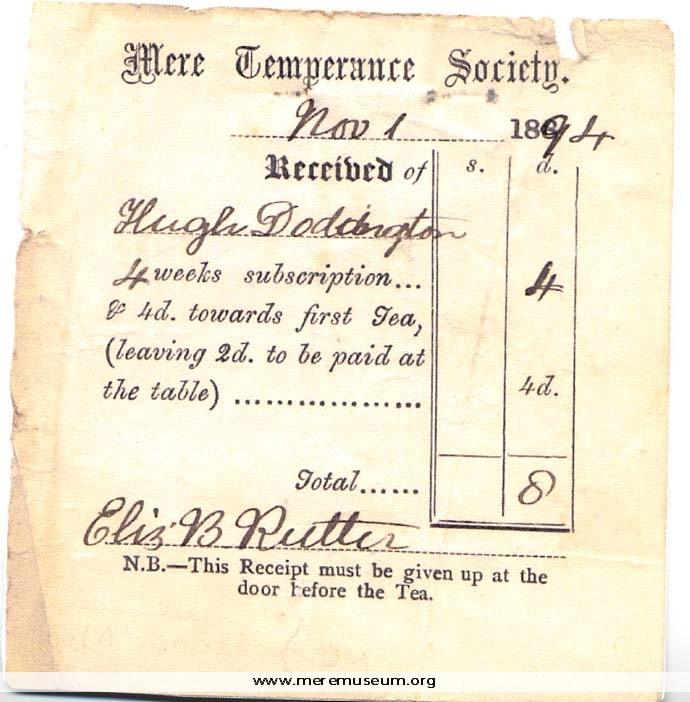 Mere Temperance Society.
Nov 1 1894
Received of s. d.
Hugh Doddington
4 weeks subscription... 4
& 4d. towards first Tea,
(leaving 2d. to be paid at
the table) .................. 4d.
Total...... 8
Eliz B Rutter
N.B.—This Receipt must be given up at the
door before the Tea.
www.meremuseum.org